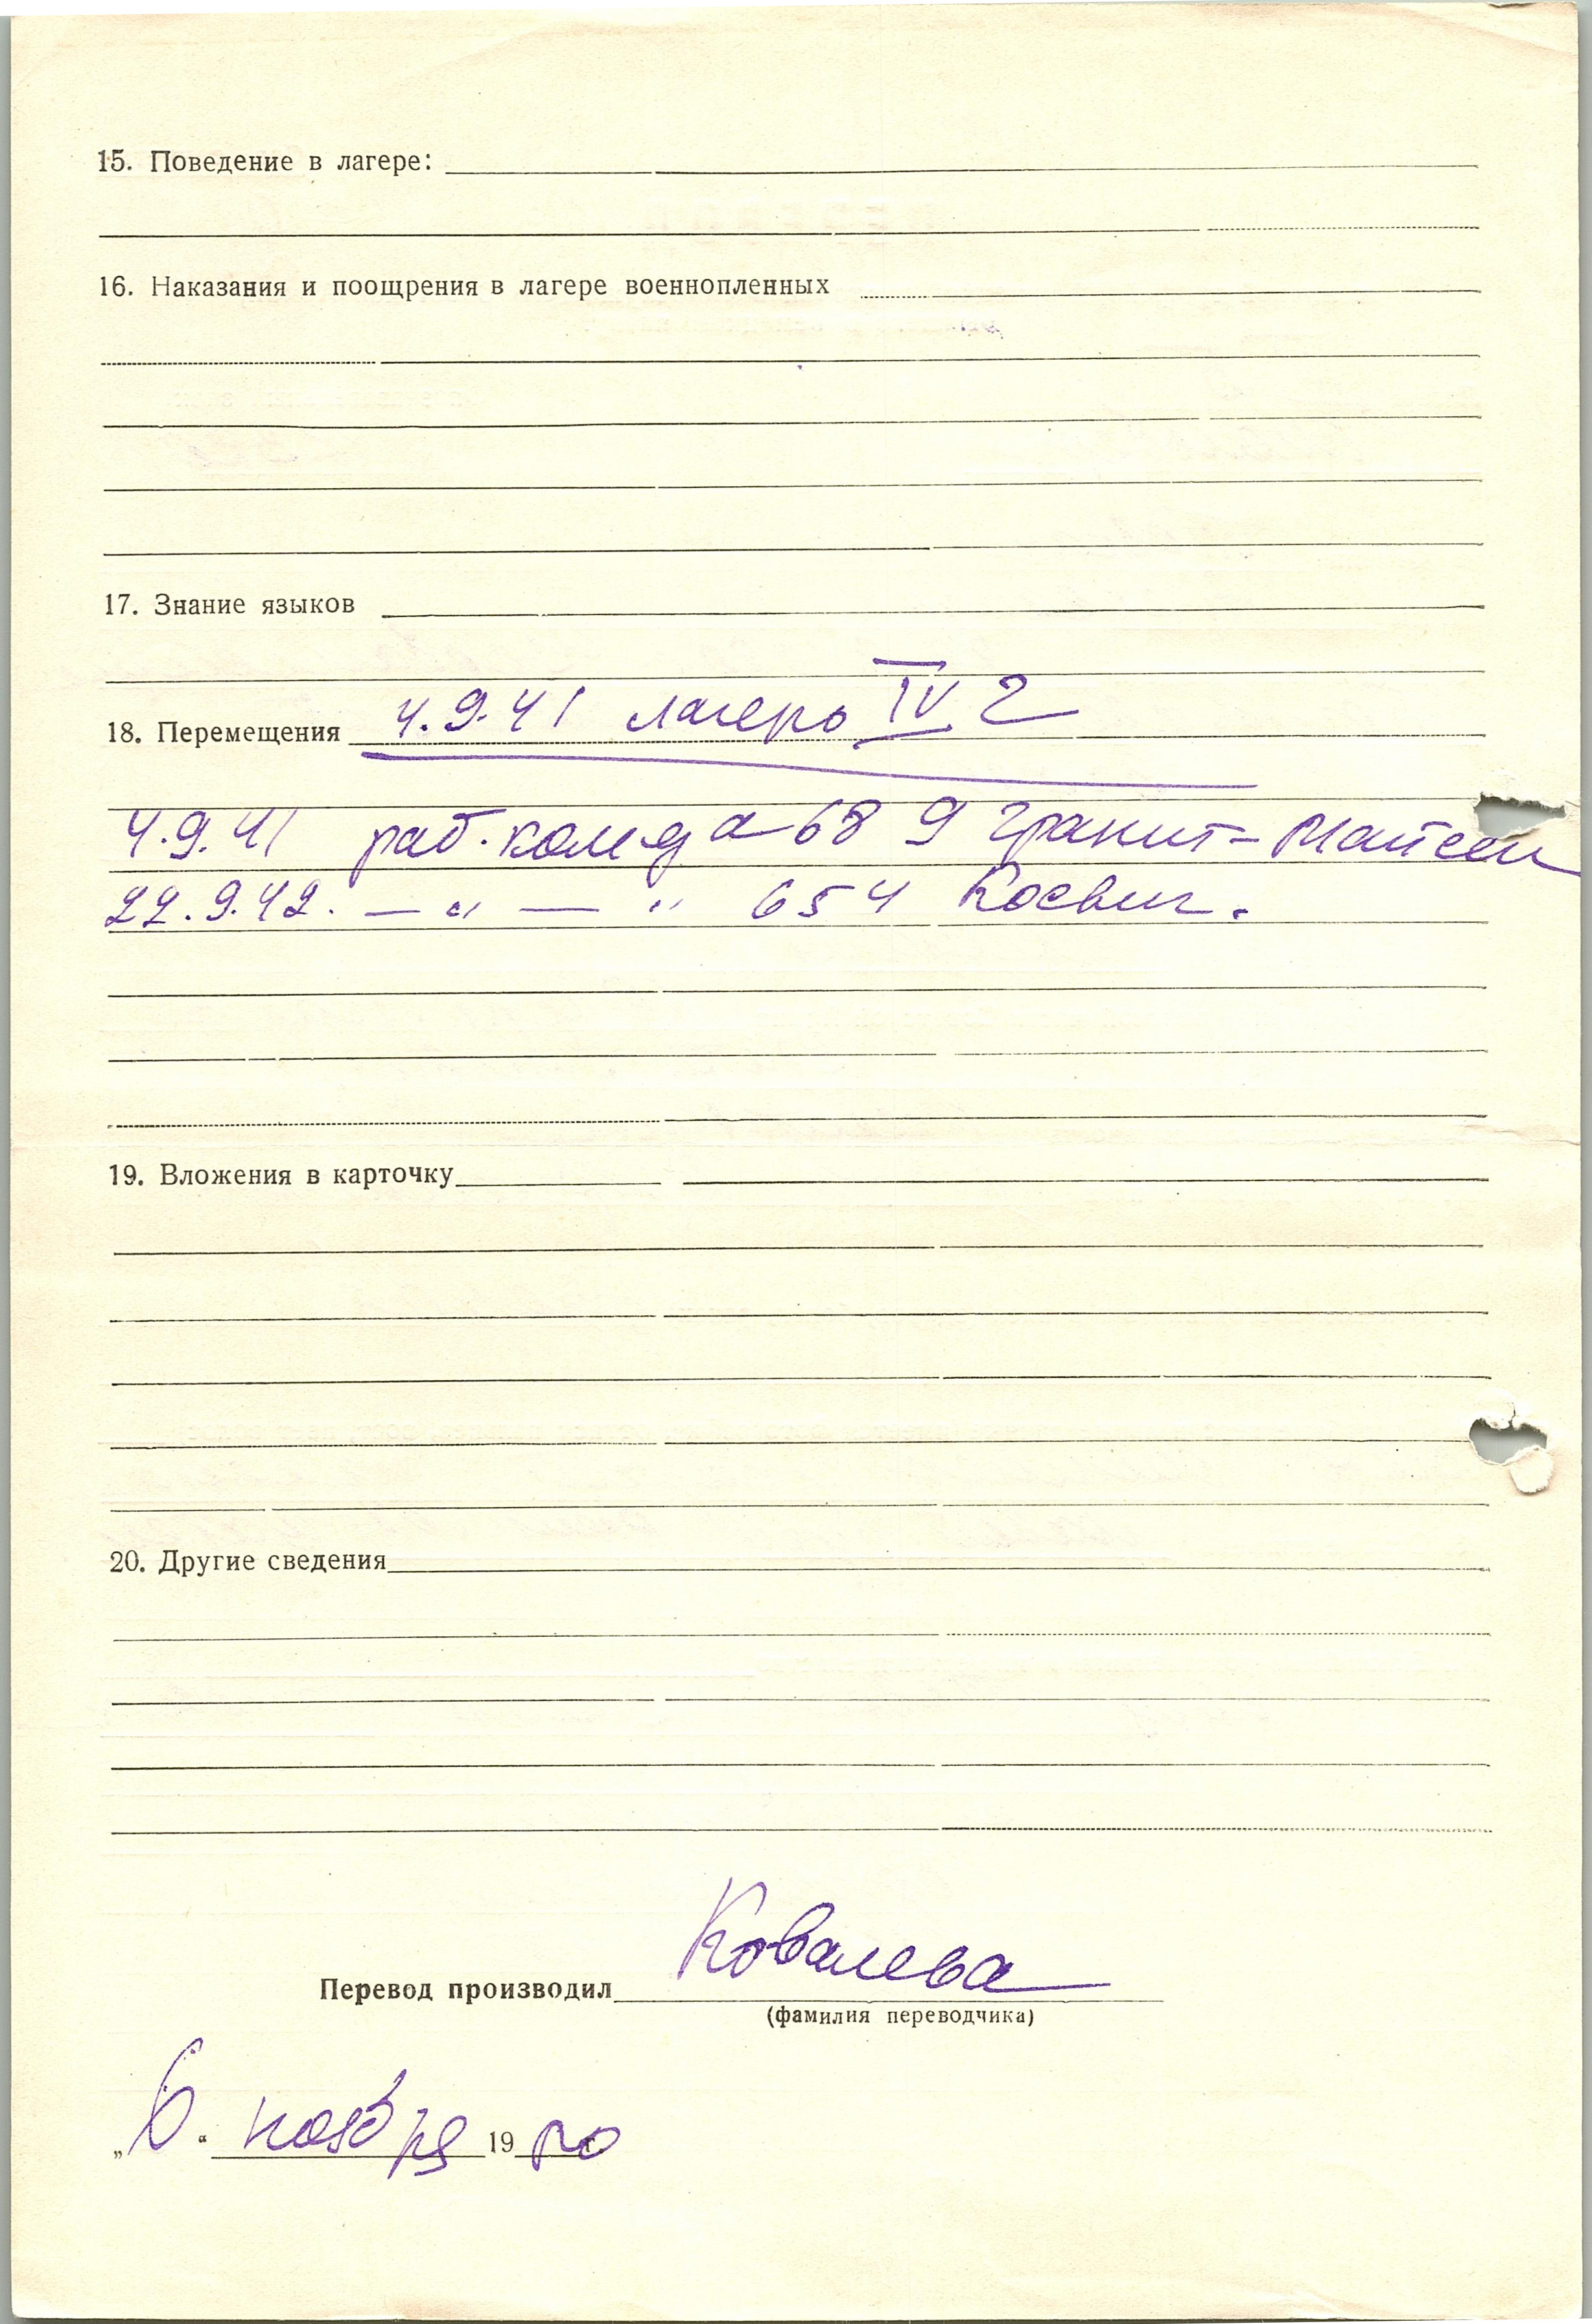 15. Поведение в лагере:
16. Наказания и поощрения в лагере военнопленных
17. Знание языков
18. Перемещения 4.9.41 лагерь IV Г
4.9.41 раб. ком-да 68 9 Гранит-Майсен
22.9.42. — „ — „ 654 Косвиг.
19. Вложения в карточку
20. Другие сведения
Перевод производил Ковалева
(фамилия переводчика)
„6." ноября 19